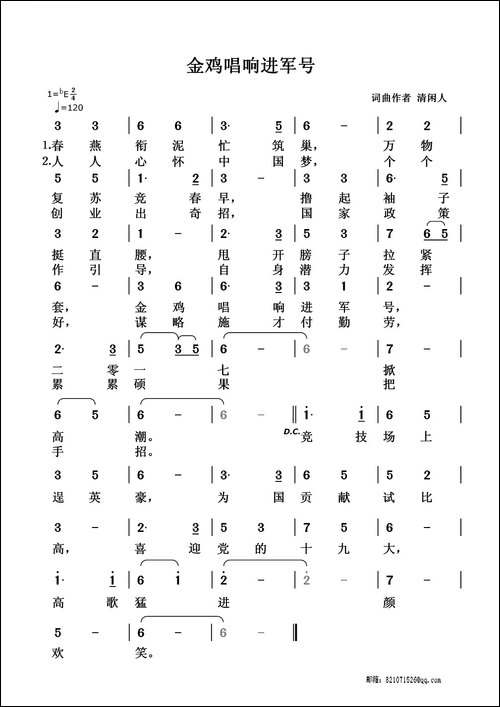 金鸡唱响进军号
1=♭E 2/4
♩=120
词曲作者 清闲人
3 3 | 6 6 | 3· 5 | 6 - | 2 2
1.春 燕 衔 泥 忙 筑 巢, 万 物
2.人 人 心 怀 中 国 梦, 个 个
5 5 | 1· 2 | 3 - | 3 3 | 6· 5
复 苏 竞 春 早, 撸 起 袖 子
创 业 出 奇 招, 国 家 政 策
3 2 | 1 - | 2· 3 | 5 3 | 7 6 5
挺 直 腰, 甩 开 膀 子 拉 紧
作 引 导, 自 身 潜 力 发 挥
6 - | 3 6 | 6 3 | 3 1 | 2 -
套, 金 鸡 唱 响 进 军 号,
好, 谋 略 施 才 付 勤 劳,
2· 3 | 5 3 5 | 6 - | 6 - | 7 -
二 零 一 七 掀
累 累 硕 果 把
6 5 | 6 - | 6 - ‖ 1· 1 | 6 5
高 潮。 D.C. 竞 技 场 上
手 招。
3 5 | 6 - | 3· 3 | 5 5 | 5 2
逞 英 豪, 为 国 贡 献 试 比
3 - | 2· 3 | 5 3 | 7 5 | 6 -
高, 喜 迎 党 的 十 九 大,
1· 1 | 6 1 | 2 - | 2 - | 7 -
高 歌 猛 进 颜
5 - | 6 - | 6 - ‖
欢 笑。
邮箱: 821071526@qq.com